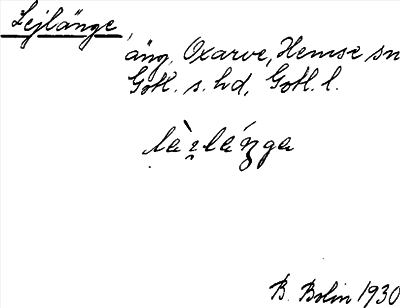 Lejlänge,
äng, Oxarve, Hemse sn
Gotl. s. hd, Gotl. l.
B. Bolin 1930